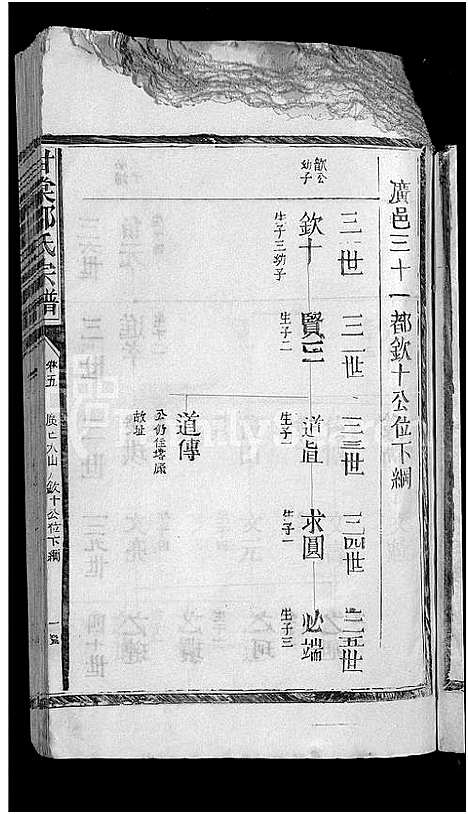 廣邑三十一都欽十公位下綱
三一世 三二世 三三世 三四世 三五世
歆公幼子
欽十 生子三幼子
賢三 生子二
道真 生子一
求圓 生子一
必端 生子三
道傳 公仍住塔廠故址
甘棠鄧氏宗譜
卷五
欽十公位下綱
一